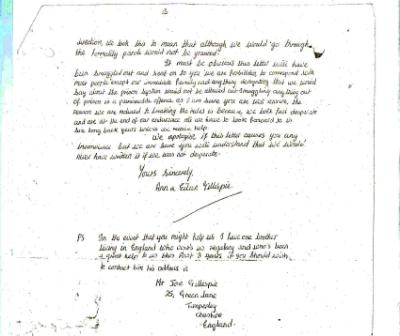 direction, we took this to mean that although we would go through
the formality parole would not be granted.
It must be obvious this letter will have
been smuggled out and sent on to you we are forbidden to correspond with
most people except our immediate family and anything derogatory that we would
say about the prison system would not be allowed out. Smuggling anything out
of prison is a punishable offence as I am sure you are well aware, the
reason we are reduced to breaking the rules is because, we both feel desperate
and are at the end of our endurance all we have to look forward to is
five long back years unless we receive help.
We apologise if this letter causes you any
inconvience but we are sure you will understand that we would
never have written it if we was not desperate.
Yours sincerely,
Ann & Eileen Gillespie
PS In the event that you might help us I have one brother
living in England who visits us regulary and who's been
a great help to us this last 9 years if you should wish
to contact him his address is
Mr Joe Gillespie
25, Green Lane
Timperley
Cheshire
England.